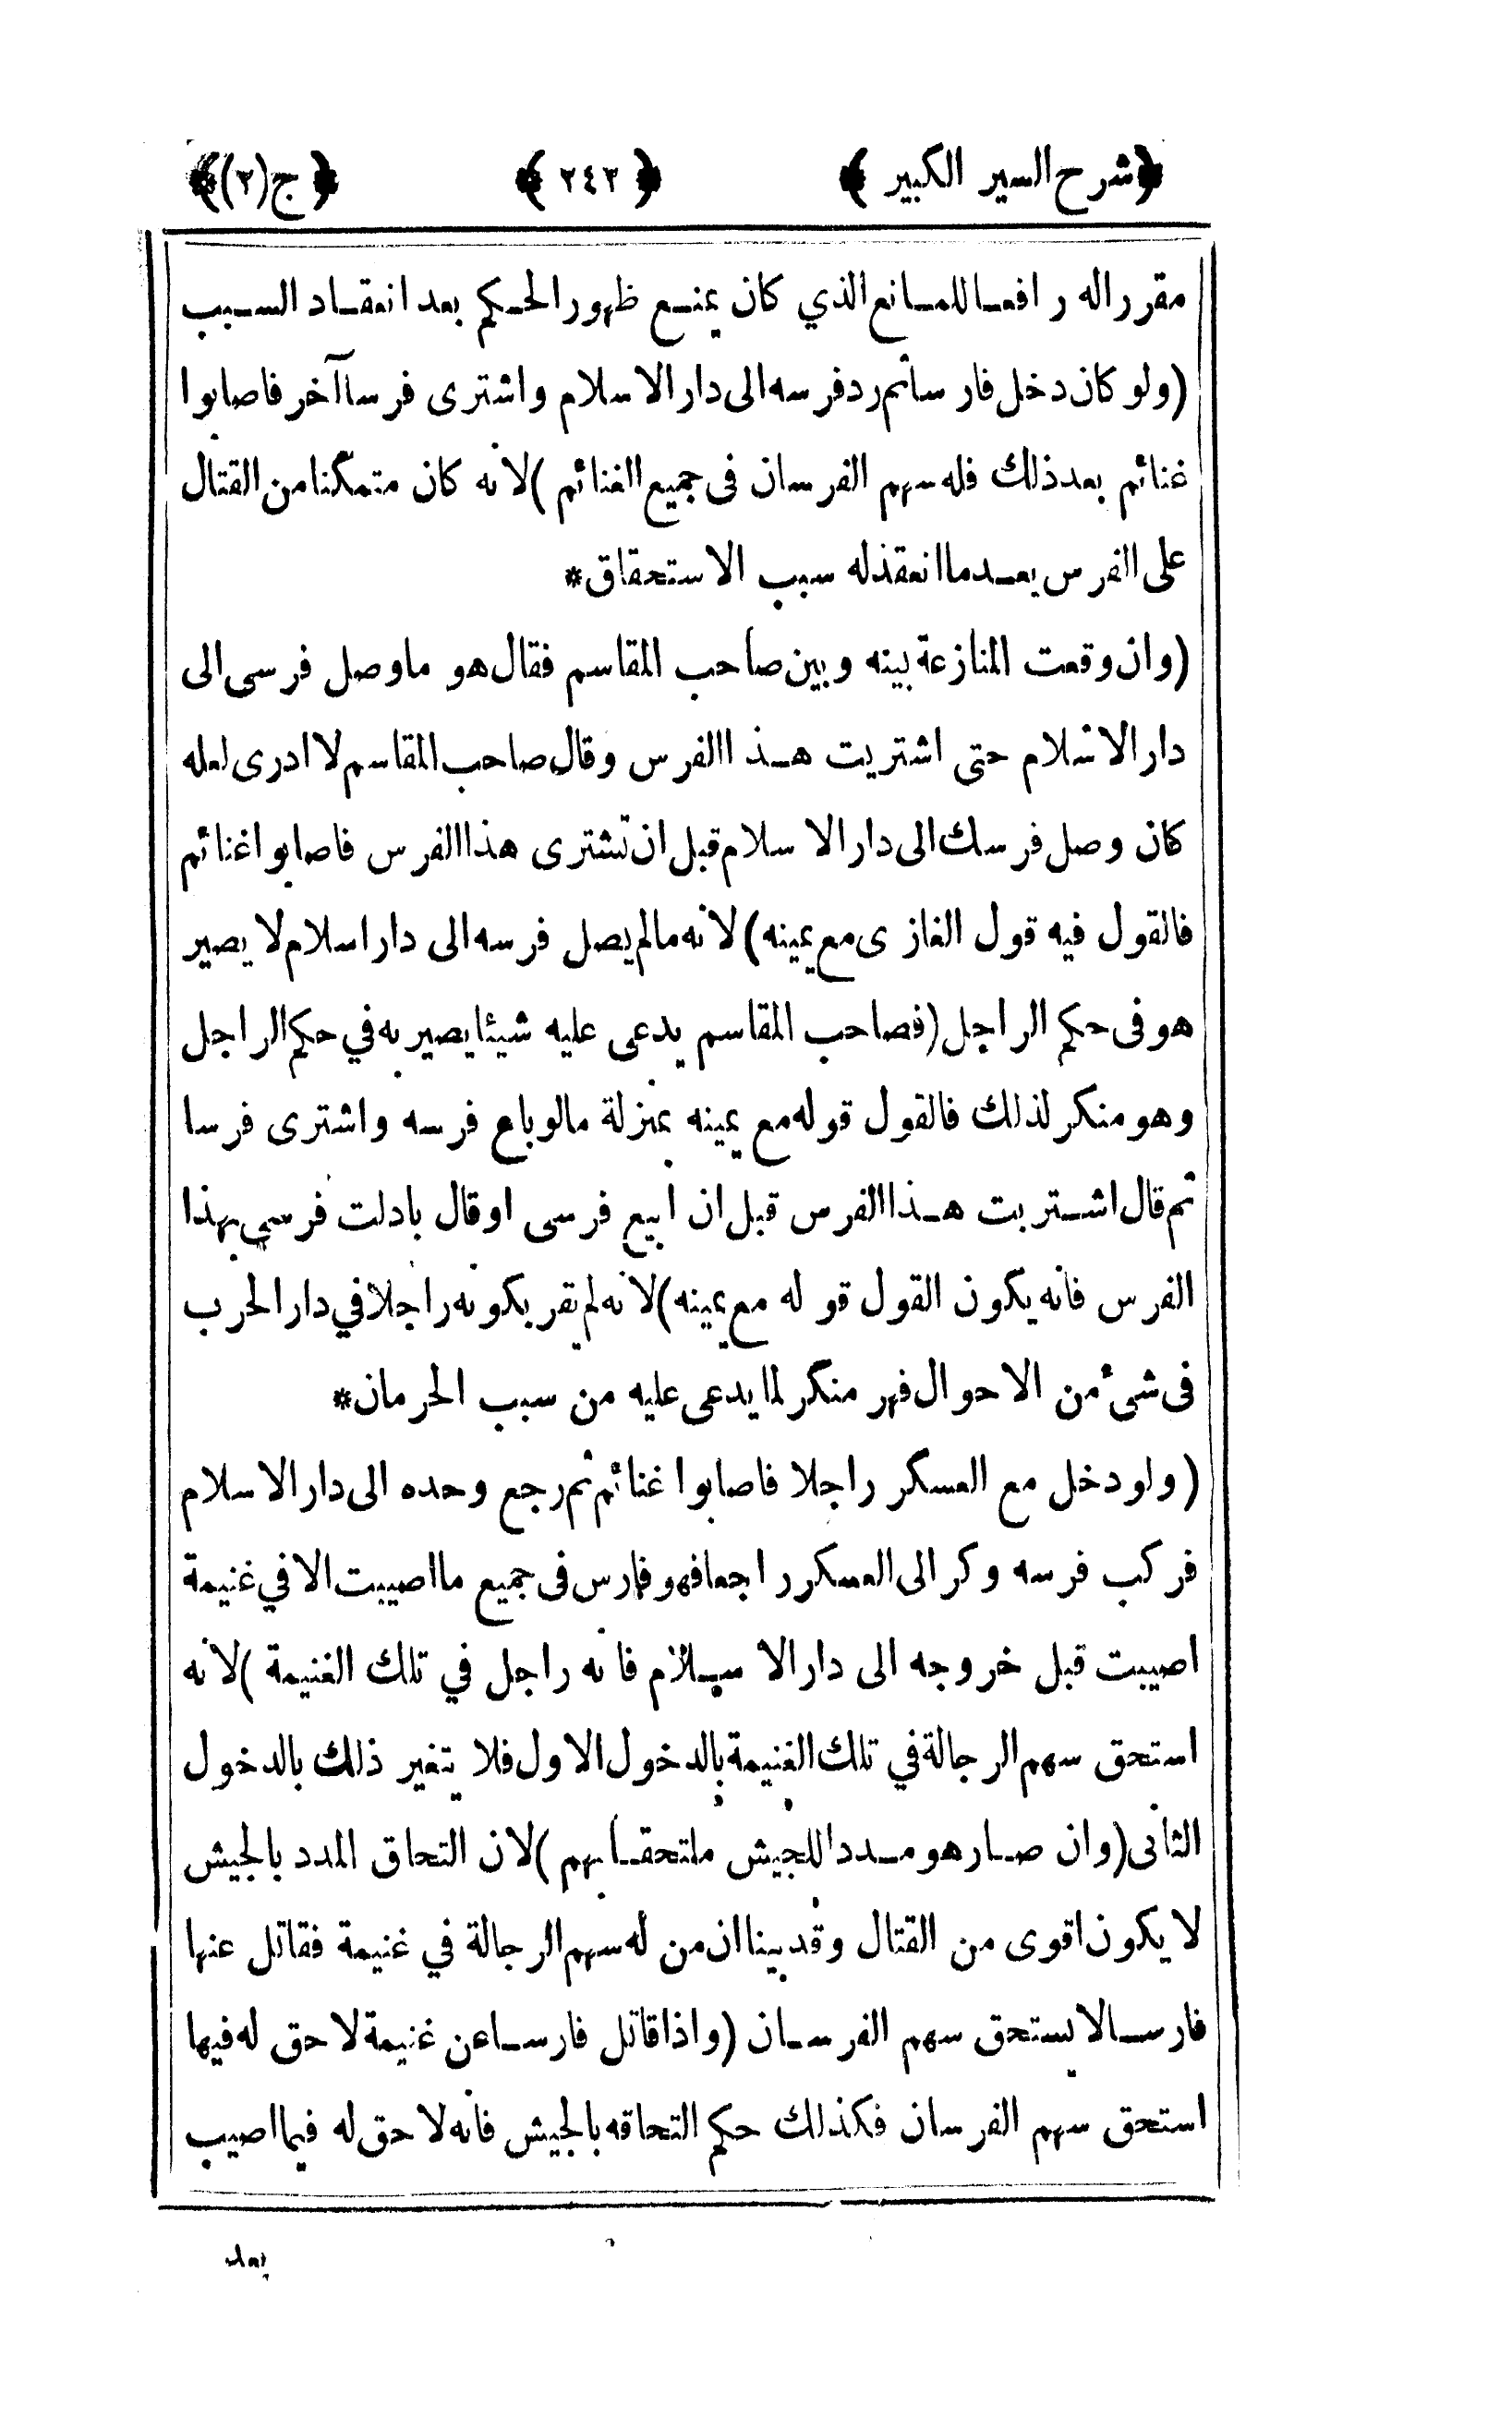 ﴿شرح السير الكبير﴾ ﴿٢٤٢﴾ ﴿ج(٢)﴾
مقررا له رافعا للمانع الذي كان يمنع ظهور الحكم بعد انعقاد السبب
(ولو كان دخل فارسا ثم رد فرسه الى دار الاسلام واشترى فرسا آخر فاصابوا
غنائم بعد ذلك فله سهم الفرسان فى جميع الغنائم) لانه كان متمكنا من القتال
على الفرس بعد ما انعقد له سبب الاستحقاق*
(وان وقعت المنازعة بينه وبين صاحب المقاسم فقال هو ما وصل فرسى الى
دار الاسلام حتى اشتريت هذا الفرس وقال صاحب المقاسم لا ادرى لعله
كان وصل فرسك الى دار الاسلام قبل ان تشترى هذا الفرس فاصابوا غنائم
فالقول فيه قول الغازى مع يمينه) لانه مالم يصل فرسه الى دار اسلام لا يصير
هو فى حكم الراجل (فصاحب المقاسم يدعى عليه شيئا يصير به في حكم الراجل
وهو منكر لذلك فالقول قوله مع يمينه بمنزلة مالو باع فرسه واشترى فرسا
ثم قال اشتريت هذا الفرس قبل ان ابيع فرسى او قال بادلت فرسى بهذا
الفرس فانه يكون القول قوله مع يمينه) لانه لم يقر بكونه راجلا في دار الحرب
فى شئ من الاحوال فهو منكر لما يدعى عليه من سبب الحرمان*
(ولو دخل مع العسكر راجلا فاصابوا غنائم ثم رجع وحده الى دار الاسلام
فركب فرسه وكر الى العسكر راجعا فهو فارس فى جميع ما اصيبت الا في غنيمة
اصيبت قبل خروجه الى دار الاسلام فانه راجل في تلك الغنيمة) لانه
استحق سهم الرجالة في تلك الغنيمة بالدخول الاول فلا يتغير ذلك بالدخول
الثانى (وان صار هو مددا للجيش ملتحقا بهم) لان التحاق المدد بالجيش
لا يكون اقوى من القتال وقد بينا ان من له سهم الرجالة في غنيمة فقاتل عنها
فارسا لا يستحق سهم الفرسان (واذا قاتل فارسا عن غنيمة لا حق له فيها
استحق سهم الفرسان فكذلك حكم التحاقه بالجيش فانه لا حق له فيما اصيب
بعد